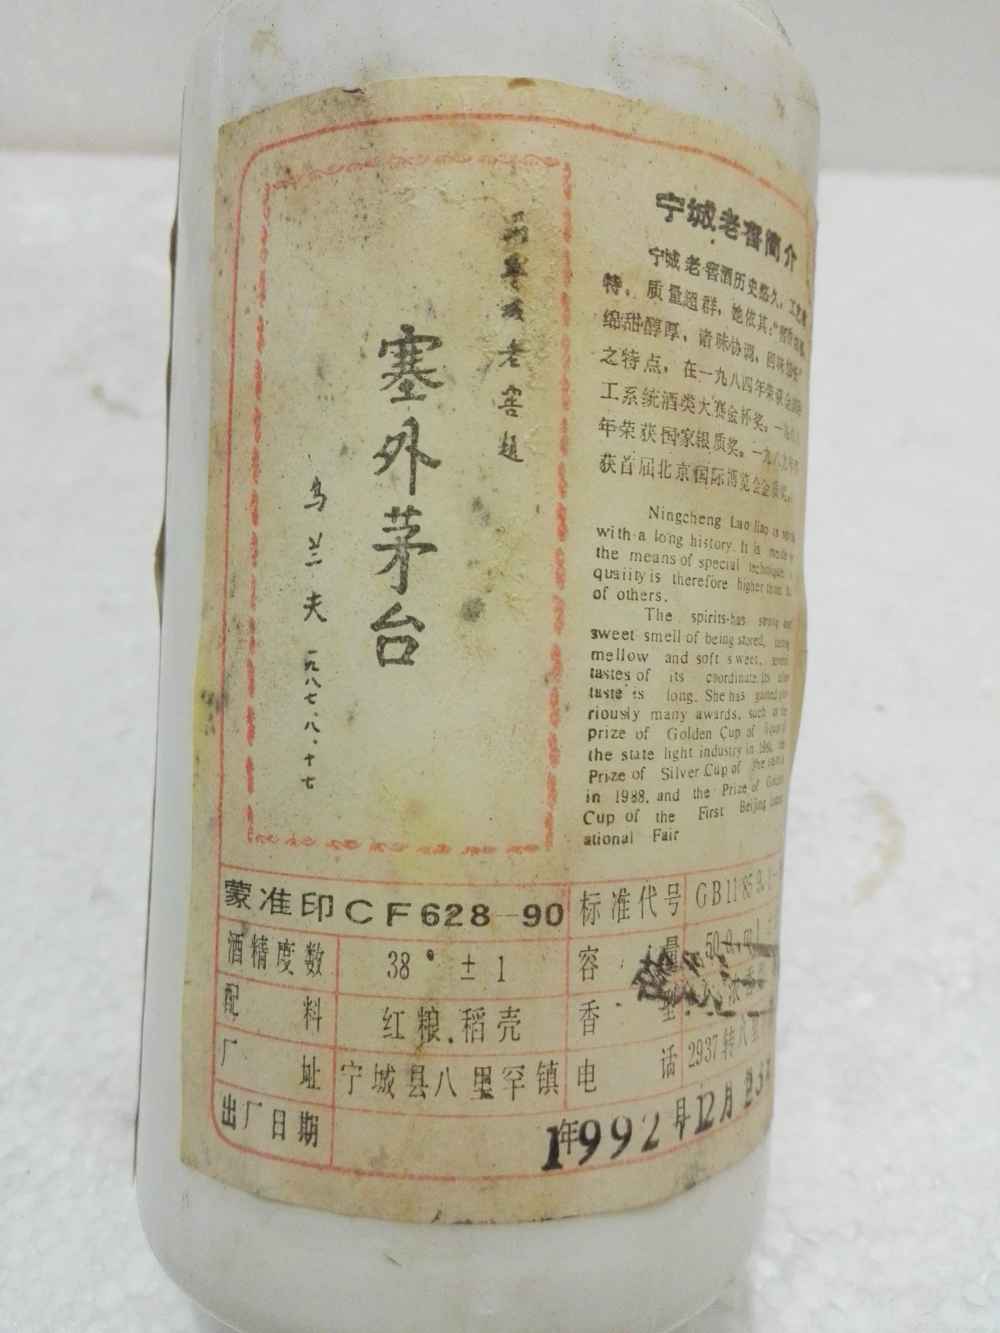 老窖题
塞外茅台
乌兰夫 一九八七.八.十七
宁城老窖简介
宁城老窖酒历史悠久，工艺
特，质量超群，她依其："窖香
绵甜醇厚，诸味协调，回味
之特点，在一九八四年荣获
工系统酒类大赛金杯奖。一九八
年荣获国家银质奖。一九八九年
获首届北京国际博览会金质奖。
Ningcheng Lao Jiao is
with a long history. It is made
the means of special technique
quaiity is therefore higher than
of others.
The spirits has strong and
sweet smell of being stored,
mellow and soft sweet, several
tastes of its coordinate. Its after
taste is long. She has gained
riously many awards, such as the
prize of Golden Cup of
the state light industry in
Prize of Silver Cup of the
in 1988, and the Prize of Golden
Cup of the First Beijing
ational Fair
蒙准印CF628-90 标准代号 GB11
酒精度数 38°±1 容量
配料 红粮.稻壳 香型 浓香
厂址 宁城县八里罕镇 电话 2937转八里
出厂日期 1年992年12月23